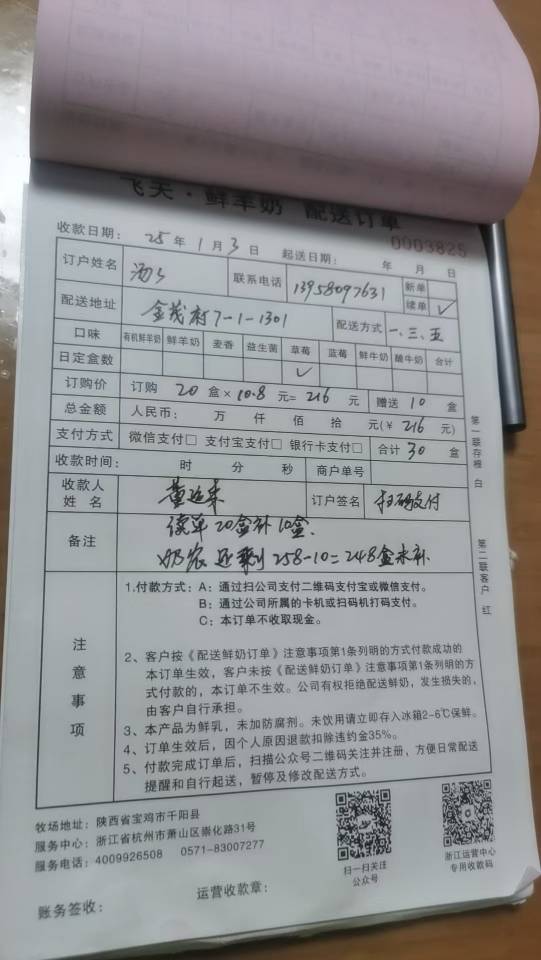 飞天·鲜羊奶 配送订单
0003825
收款日期: 25 年 1 月 3 日 起送日期: 年 月 日
订户姓名 联系电话 13958097631 新单
续单 ✓
配送地址 金茂府7-1-1301 配送方式 一、三、五
口味 有机鲜羊奶 鲜羊奶 麦香 益生菌 草莓 蓝莓 鲜牛奶 酸牛奶 合计
日定盒数 ✓
订购价 订购 20 盒×10.8 元= 216 元 赠送 10 盒
总金额 人民币: 万 仟 佰 拾 元(¥ 216 元)
支付方式 微信支付□ 支付宝支付□ 银行卡支付□ 合计 30 盒
收款时间: 时 分 秒 商户单号
收款人姓名 订户签名 扫码支付
备注 续单20盒补10盒.
奶农还剩258-10=248盒未补.
注意事项
1.付款方式: A: 通过扫公司支付二维码支付宝或微信支付。
B: 通过公司所属的卡机或扫码机打码支付。
C: 本订单不收取现金。
2、客户按《配送鲜奶订单》注意事项第1条列明的方式付款成功的
本订单生效，客户未按《配送鲜奶订单》注意事项第1条列明的方
式付款的，本订单不生效。公司有权拒绝配送鲜奶，发生损失的，
由客户自行承担。
3、本产品为鲜乳，未加防腐剂。未饮用请立即存入冰箱2-6℃保鲜。
4、订单生效后，因个人原因退款扣除违约金35%。
5、付款完成订单后，扫描公众号二维码关注并注册，方便日常配送
提醒和自行起送，暂停及修改配送方式。
第一联存根 白
第二联客户 红
牧场地址: 陕西省宝鸡市千阳县
服务中心: 浙江省杭州市萧山区崇化路31号
服务电话: 4009926508 0571-83007277
扫一扫关注
公众号
浙江运营中心
专用收款码
运营收款章:
账务签收: